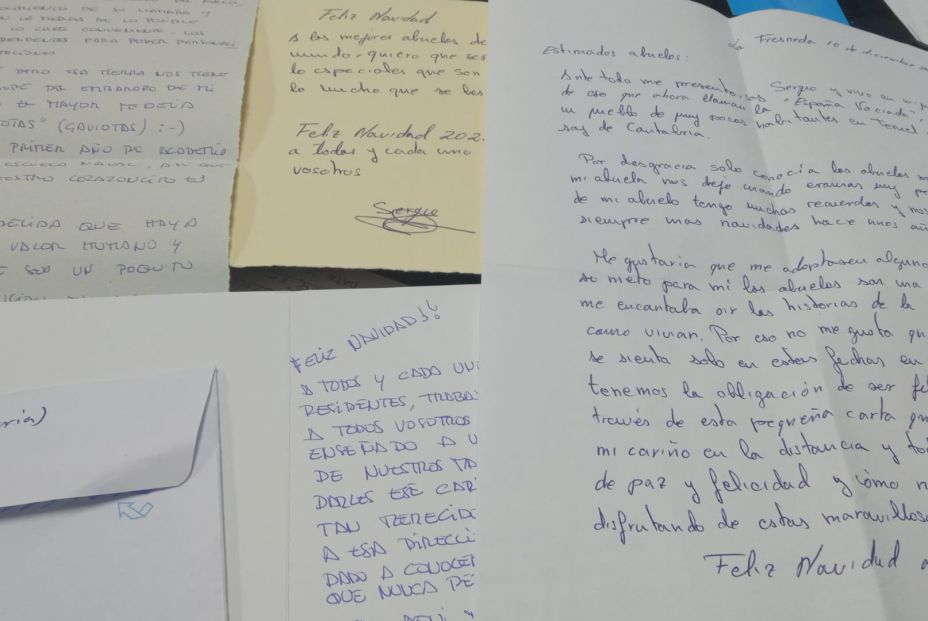 DE SU
Y
DE LO POSIBLE
LO CREEE CONVENIENTE - LOS
PARA PODER
PERO ESA TIERRA NOS TIENE
DE MI
EL MAYOR
(GAVIOTAS) :-)
PRIMER AÑO DE ACADEMIA
ESCUELA NAVAL,
CORAZONCITO ES
QUE HAYA
VALOR HUMANO Y
SEO UN POQUITO
Feliz Navidad
A los mejores abuelos de
mundo, quiero que se
lo especiales que son
lo mucho que se les
Feliz Navidad 202
a todos y cada uno
vosotros
Sergio
FELIZ NAVIDAD!!
A TODOS Y CADA UN
RESIDENTES, TRABA
A TODOS VOSOTROS
ENSEÑADO A V
DE NUESTROS
DARLES ESE CARI
TAN MERECIDO
A ESA DIRECCI
DADO A CONOCER
QUE NUNCA PE
La Fresneda 10 de diciembre
Estimados abuelos:
Ante todo me presento, soy Sergio y vivo en un
de eso que ahora llaman la "España Vaciada",
un pueblo de muy pocos habitantes en Teruel.
sas de Cantabria.
Por desgracia solo conocía los abuelos
mi abuela nos dejo cuando eramos muy pe
de mi abuelo tengo muchos recuerdos y nos
siempre mas navidades hace unos añ
Me gustaria que me adoptasen alguno
su nieto para mi los abuelos son una
me encantaba oir las historias de la
como vivian. Por eso no me gusta qu
se sienta solo en estas fechas en
tenemos la obligación de ser fel
través de esta pequeña carta qu
mi cariño en la distancia y to
de paz y felicidad y cómo n
disfrutando de estas maravillos
Feliz Navidad a